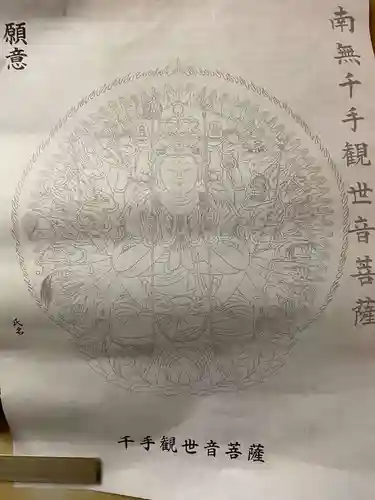 南無千手観世音菩薩
願意
氏名
千手観世音菩薩